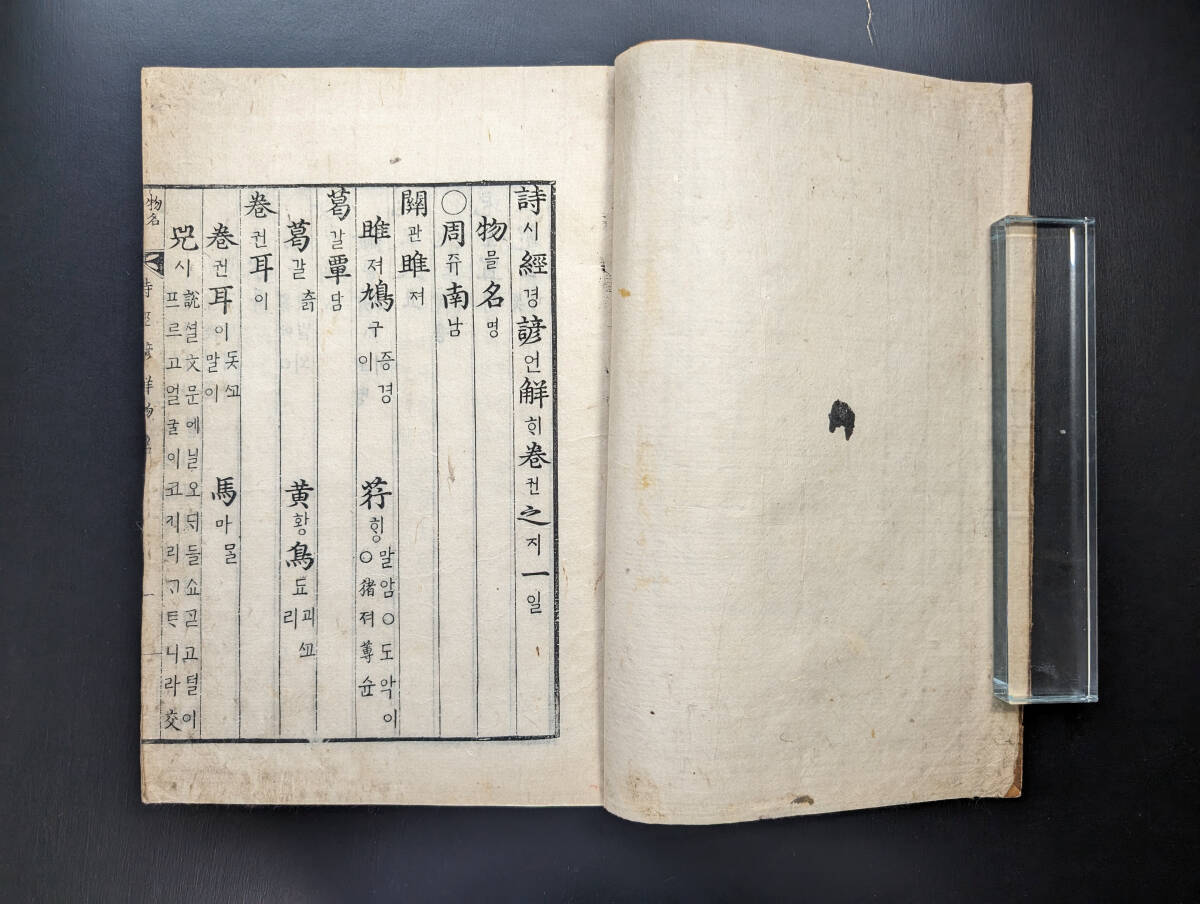 詩시經경諺언解ᄒᆡ卷권之지一일
物믈名명
○周쥬南남
關관雎져
雎져鳩구증경이 荇ᄒᆡᆼ말암○도악이○猪져蓴슌
葛갈覃담
葛갈츩 黃황鳥됴괴ᄭᅩ리
卷권耳이
卷권耳이돗ᄭᅩ말이 馬마ᄆᆞᆯ
兕시說셜文문에닐오ᄃᆡ들쇼ᄀᆞᆮ고털이프르고얼굴이코키리ᄀᆞᄐᆞ니라交
物名